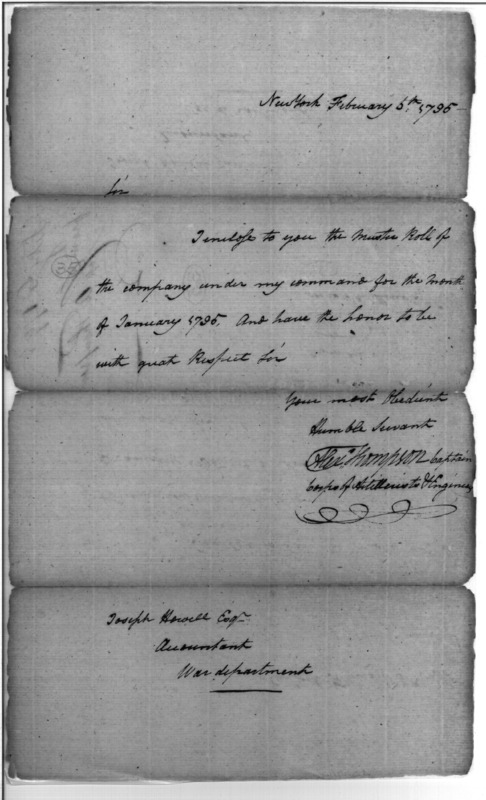 New York February 6th 1795
Sir
I inclose to you the Muster Roll of
the company under my command for the month
of January 1795. And have the honor to be
with great Respect Sir
Your most Obedient
Humble Servant
Alexr Thompson Captain
Corps of Artillerists & Engineers
Joseph Howell Esqr
Accountant
War department